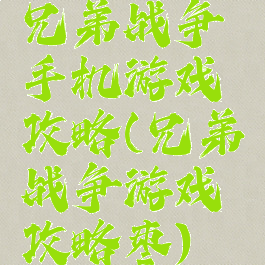 兄弟战争
手机游戏
攻略(兄弟
战争游戏
攻略枣)